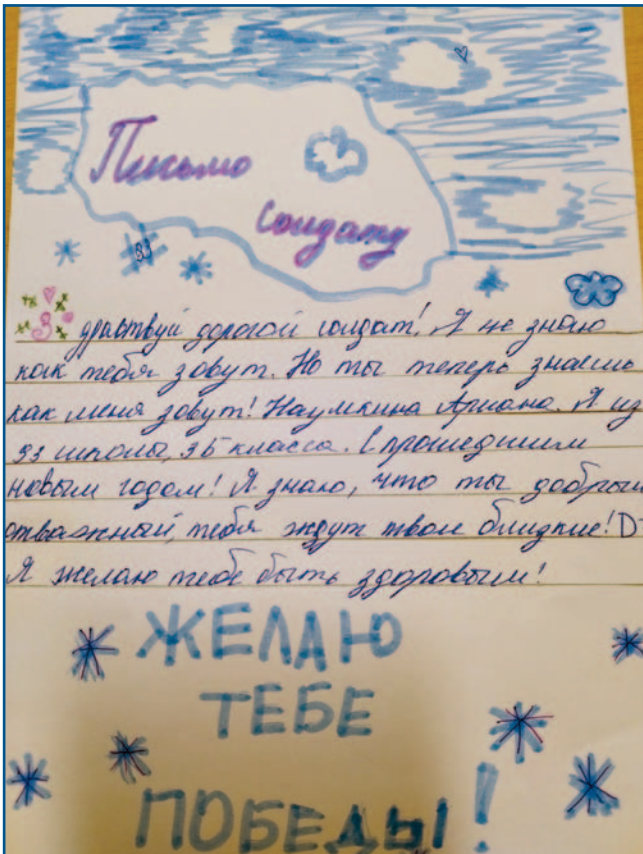 Письмо
солдату
33
Здраствуй дорогой солдат! Я не знаю
как тебя зовут. Но ты теперь знаешь
как меня зовут! Наумкина Ариана. Я из
33 школы, 3Б класса. С прошедшим
новым годом! Я знаю, что ты добрый
отважный, тебя ждут твои близкие! D
Я желаю тебе быть здоровым!
ЖЕЛАЮ
ТЕБЕ
ПОБЕДЫ!